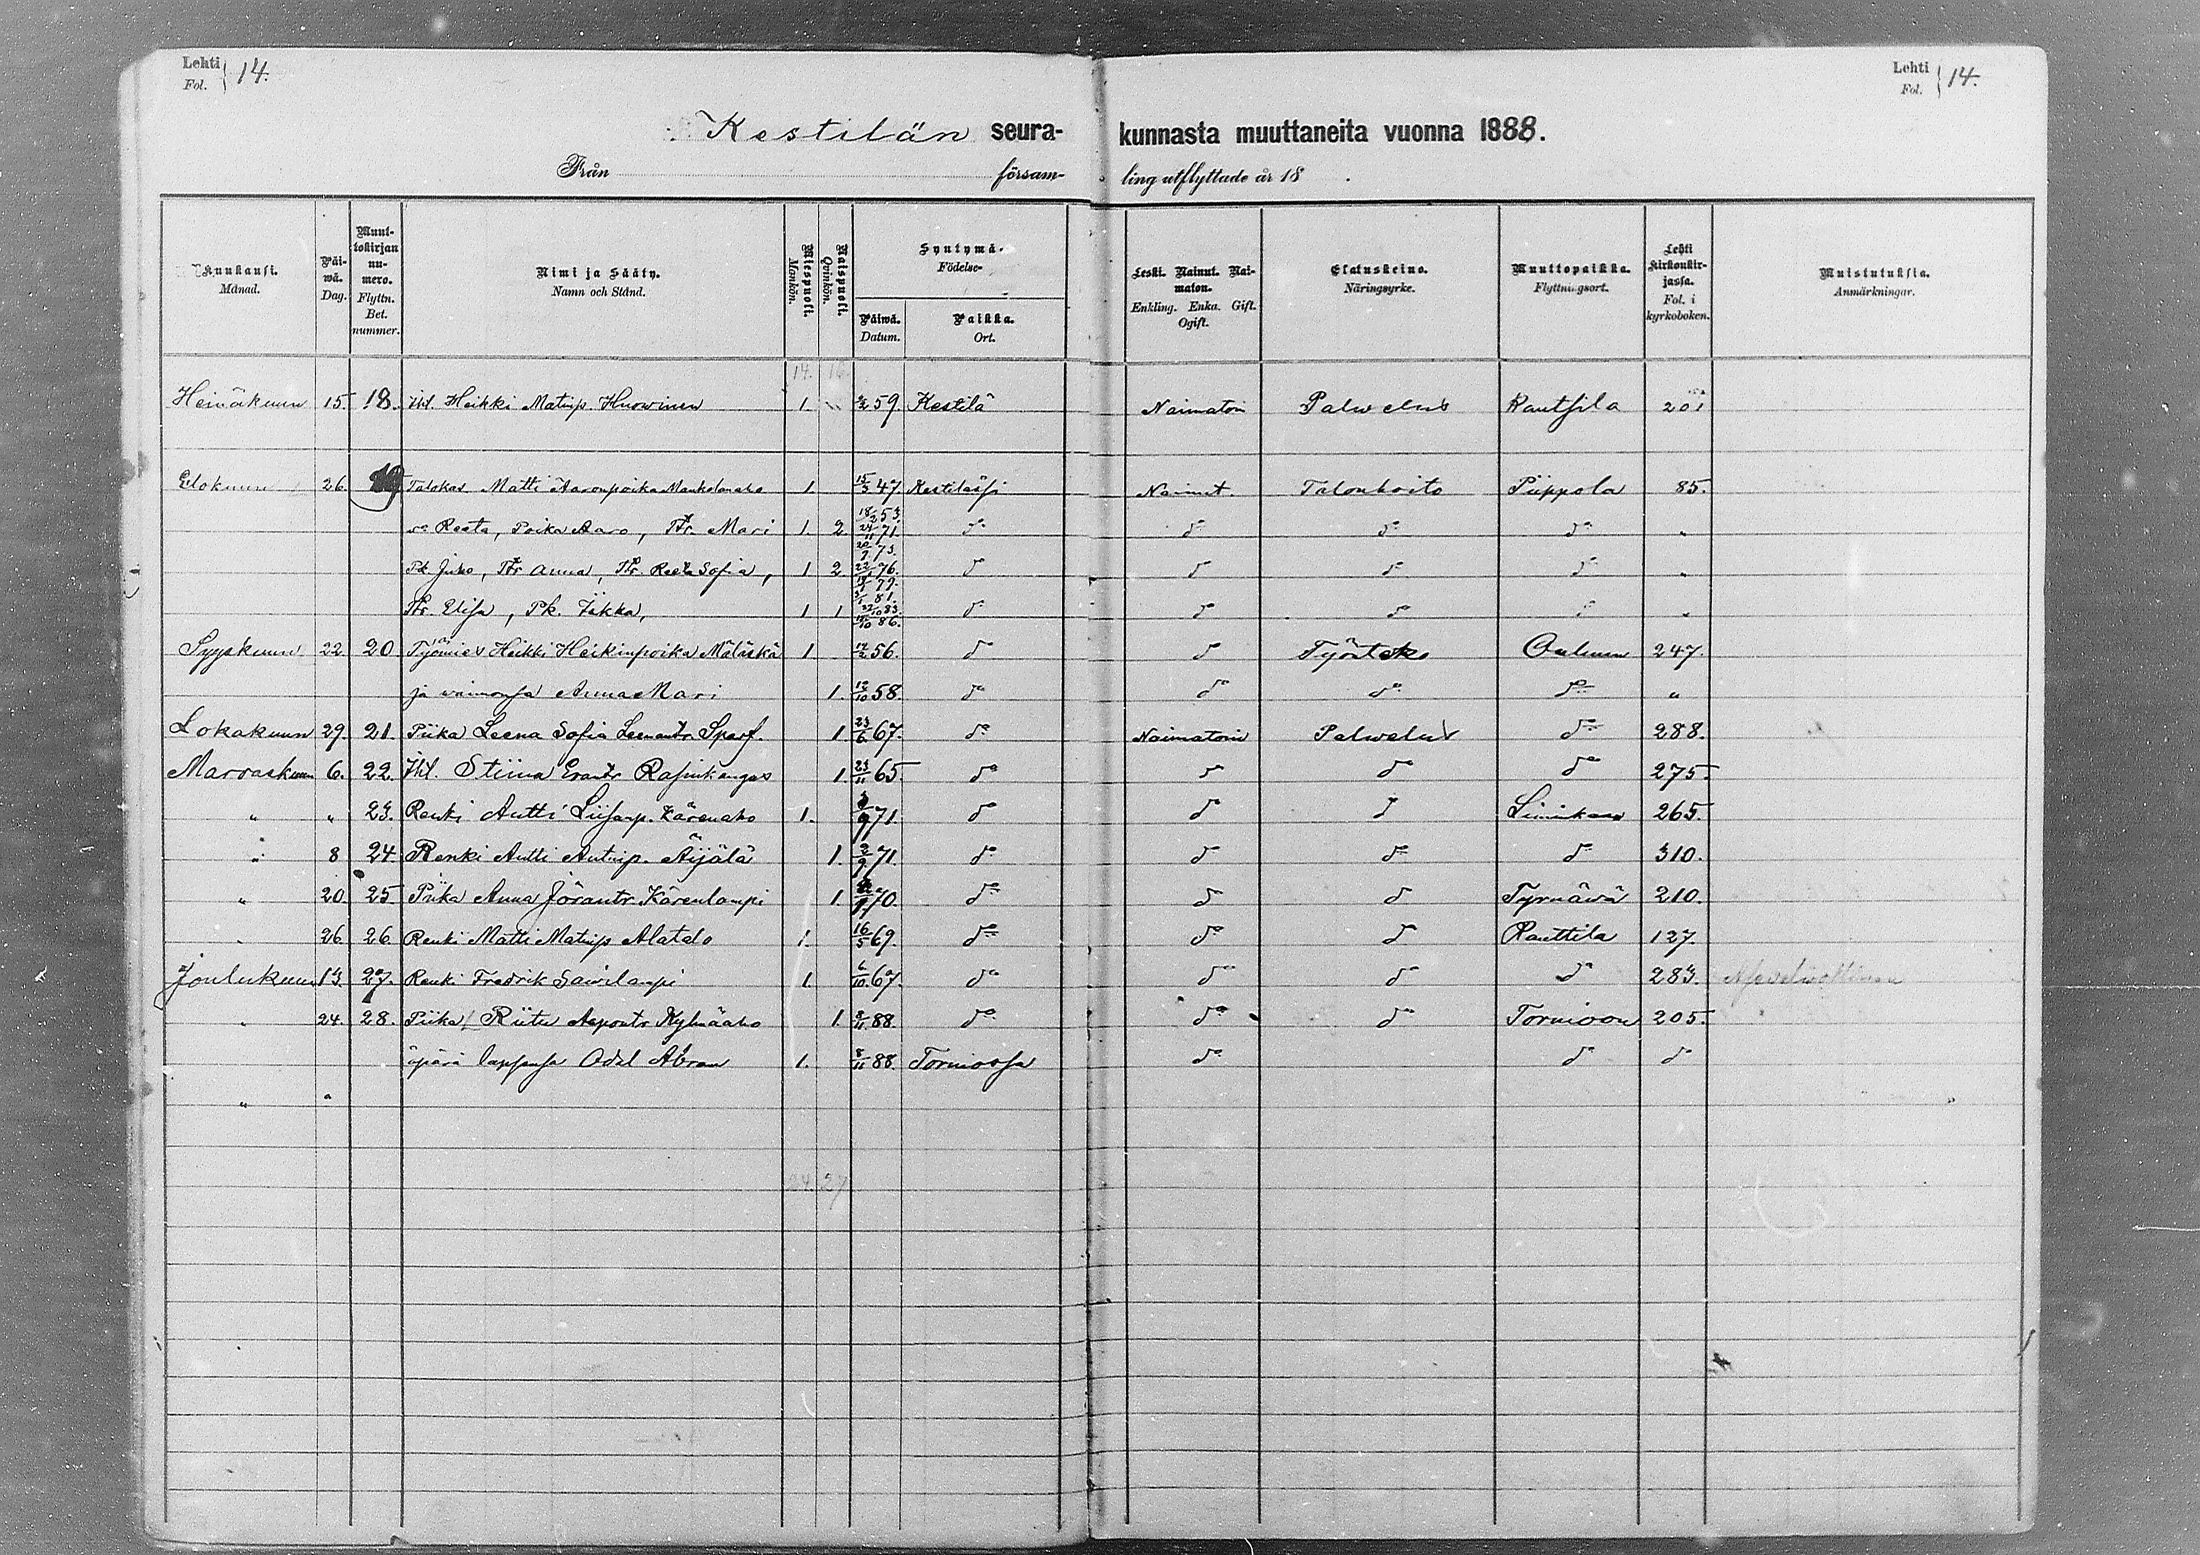 Lehti Fol. } 14.
Lehti Fol. } 14.
Kestilän seura- kunnasta muuttaneita vuonna 1888.
Från försam- ling utflyttade år 18 .
Kuukausi. Månad.
Päi-wä. Dag.
Muut-tokirjan nu-mero. Flyttn. Bet. nummer.
Nimi ja Sääty. Namn och Stånd.
Miespuoli. Mankön.
Naispuoli. Qvinkön.
Syntymä- Födelse-
Päiwä. Datum.
Paikka. Ort.
Leski. Nainut. Nai-maton. Enkling. Enka. Gift. Ogift.
Elatuskeino. Näringsyrke.
Muuttopaikka. Flyttningsort.
Lehti Kirkonkir-jassa. Fol. i kyrkoboken.
Muistutuksia. Anmärkningar.
14. 16
Heinäkuun 15. 18. Itsl. Heikki Matinp. Huowinen 1. 59 Kestilä Naimaton Palwelus Rantsila 201
Elokuun 26. 19 Talokas Matti Aaronpoika Mankolanaho 1. 15/3 47 Kestiläsfi Nainut. Talonhoito Piippola 85.
va Reeta, Poika Aaro, Tr. Mari 1. 2 18/2 53. 24/11 71. do do do do "
Pk Juho, Tr Anna, Tr. Reeta Sofia, 1 2 20/7 73. 22/1 76. 79. do do do do "
Tr. Elisa, Pk. Jäkka, 1 1 81. 83. 86. do do do do "
Syyskuun 22 20 Työmies Heikki Heikinpoika Mäläskä 1 56. do do Työnteko Ouluun 247.
ja waimonsa Anna Mari 1. 12/10 58. do do do do "
Lokakuun 29. 21. Piika Leena Sofia Leenantr. Sparf. 1. 23/6 67. do Naimatoin Palwelus do 288.
Marraskuun 6. 22. Itsl. Stiina Erantr Rasinkangas 1. 23/11 65. do do do do 275.
" " 23. Renki Antti Liisanp. Kärenaho 1. 71. do do do Liminkaan 265.
" 8 24 Renki Antti Antinp. Äijälä 1. 2/9 71. do do do do 310.
" 20. 25. Piika Anna Jörantr. Kärenlampi 1. 70. do do do Tyrnäwä 210.
" 26 26. Renki Matti Matinp Alatalo 1. 16/5 69. do do do Ranttila 127.
Joulukuun 13. 27. Renki Fredrik Sawilampi 1. 6/10 67. do do do do 283.
" 24. 28. Piika Riitu Aapontr Kylmäaho 1. 88. do do do Tornioon 205.
äpärä lapsensa Odal Abram 1. 8/11 88. Torniossa do do do
" "
24. 27